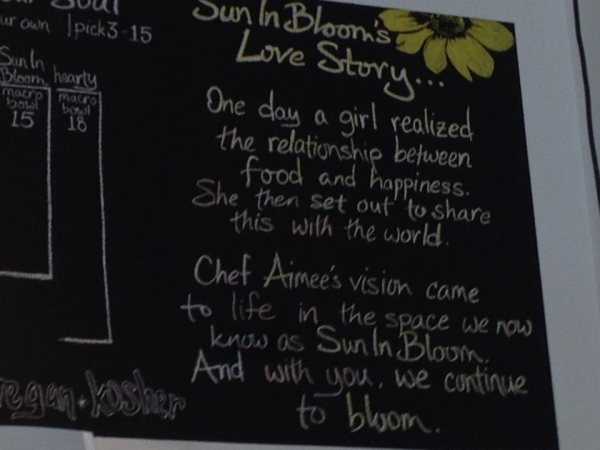 Soul
own |pick3-15
Sun In
Bloom
macro
bowl
15
hearty
macro
bowl
18
vegan·kosher
Sun In Bloom's
Love Story...
One day a girl realized
the relationship between
food and happiness.
She then set out to share
this with the world.
Chef Aimee's vision came
to life in the space we now
know as Sun In Bloom.
And with you, we continue
to bloom.